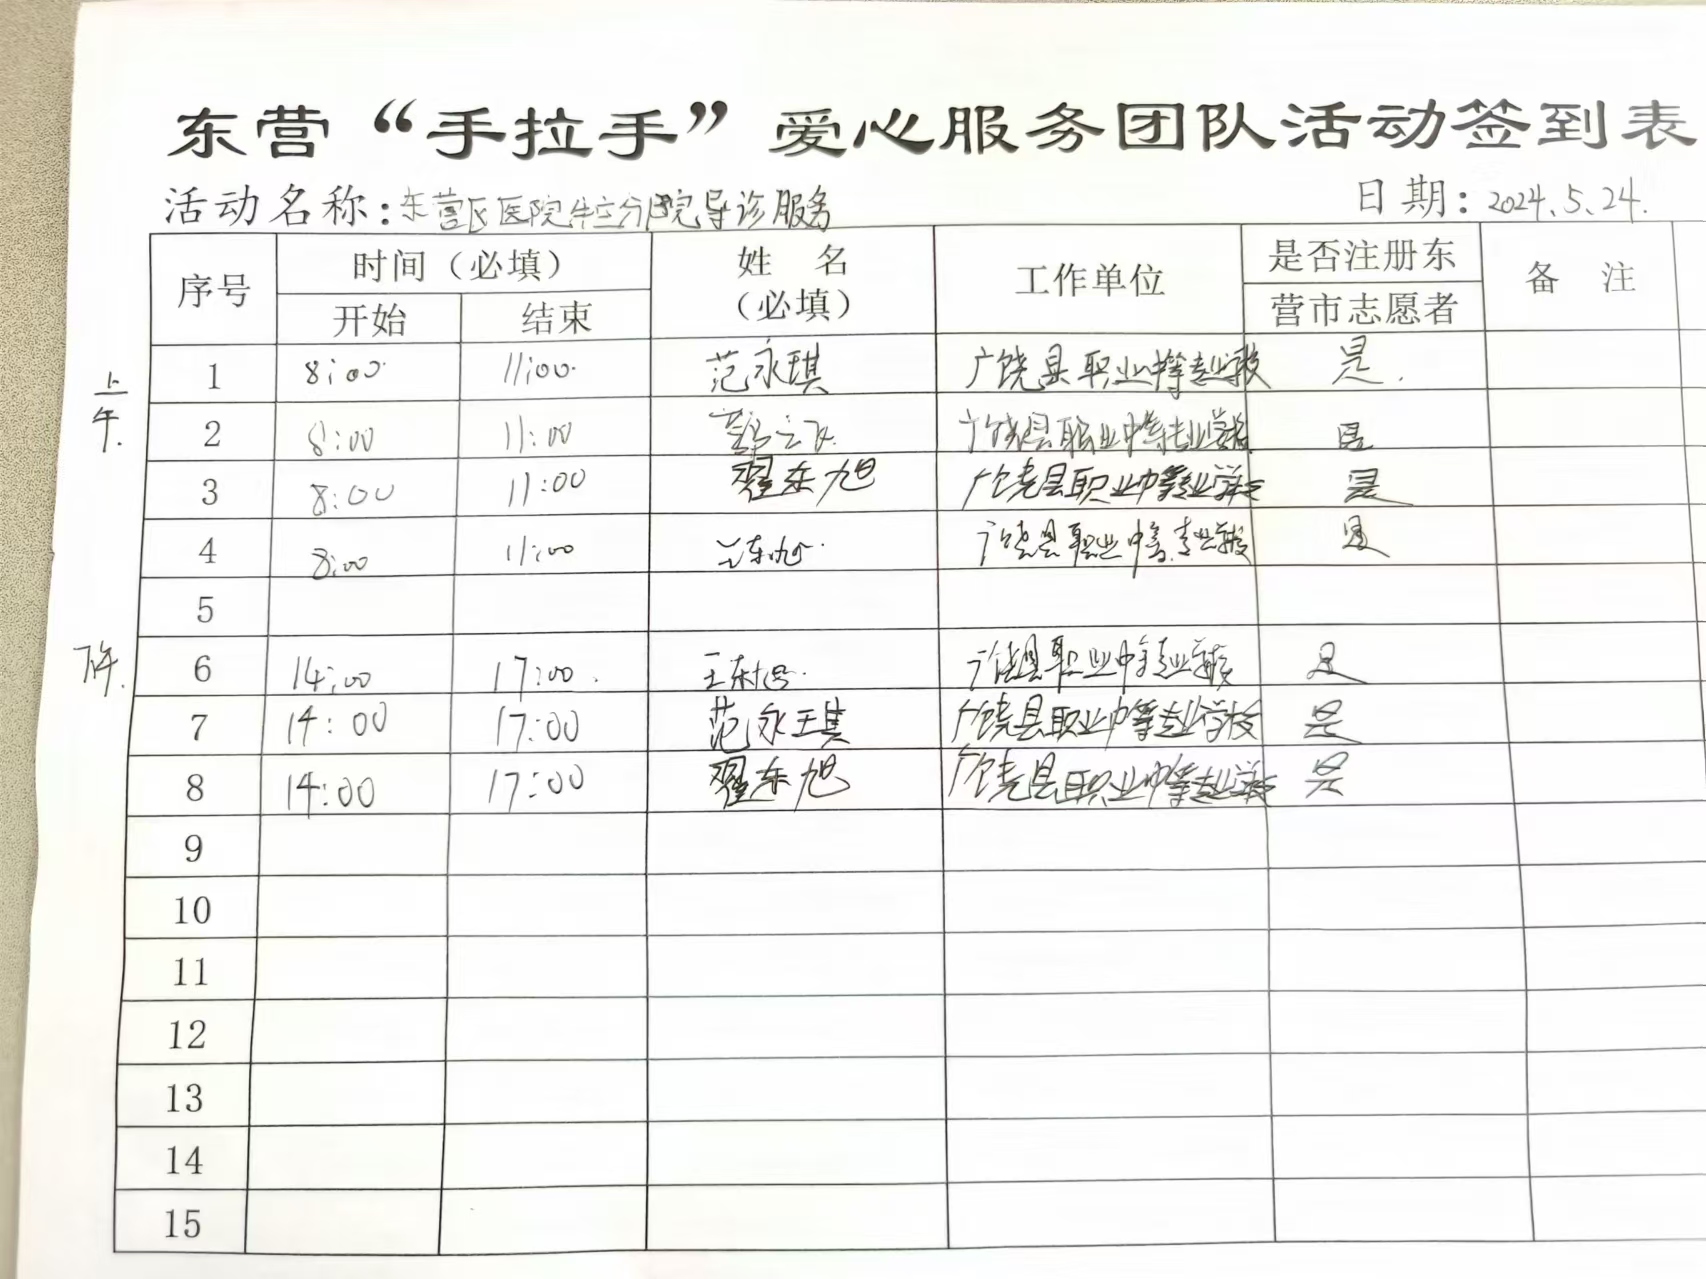 东营“手拉手”爱心服务团队活动签到表
活动名称：东营区医院牛庄分院导诊服务 日期：2024.5.24.
序号 时间（必填） 姓 名（必填） 工作单位 是否注册东营市志愿者 备 注
开始 结束
上午.
1 8:00 11:00 范永琪 广饶县职业中等专业学校 是.
2 8:00 11:00 广饶县职业中等专业学校 是
3 8:00 11:00 翟东旭 广饶县职业中等专业学校 是
4 8:00 11:00 广饶县职业中等专业学校 是
5
下午.
6 14:00 17:00. 广饶县职业中等专业学校 是
7 14:00 17:00 范永琪 广饶县职业中等专业学校 是
8 14:00 17:00 翟东旭 广饶县职业中等专业学校 是
9
10
11
12
13
14
15